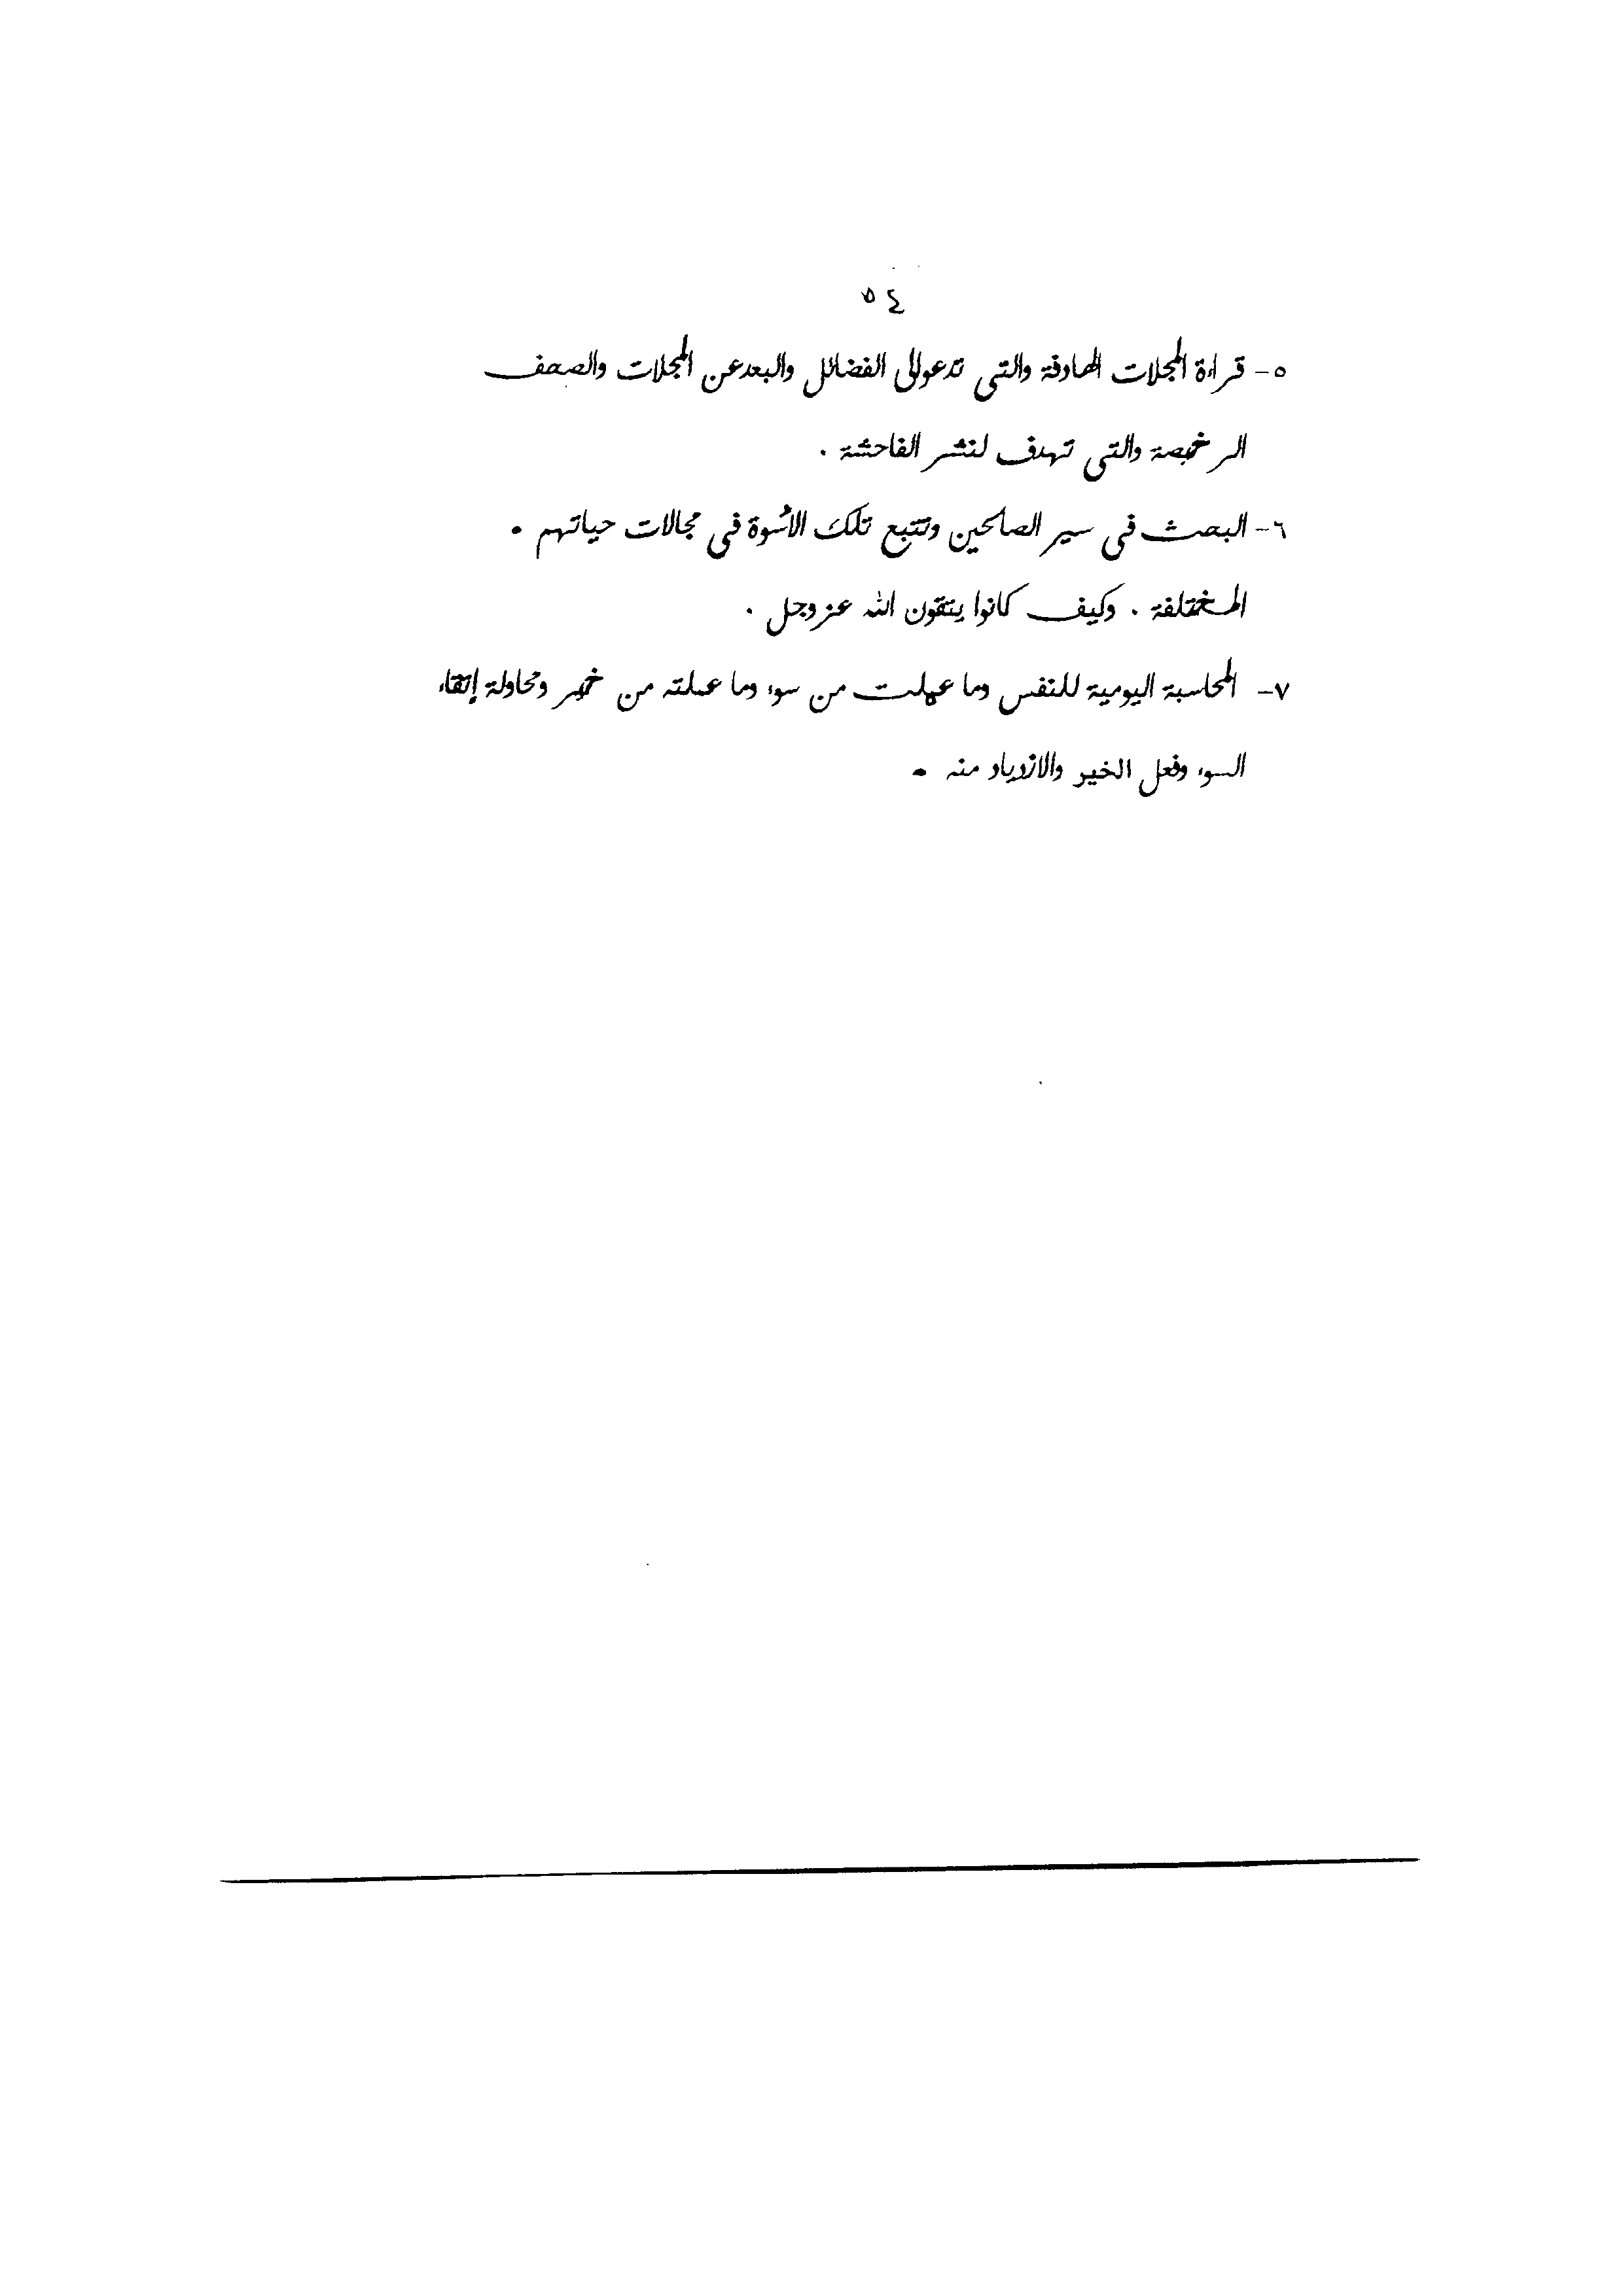 ٥٤
٥- قراءة المجلات الهادفة والتي تدعو إلى الفضائل والبعد عن المجلات والصحف
الرخيصة والتي تهدف لنشر الفاحشة .
٦- البحث في سير الصالحين وتتبع تلك الأسوة في مجالات حياتهم .
المختلفة . وكيف كانوا يتقون الله عز وجل .
٧- المحاسبة اليومية للنفس وما عملت من سوء وما عملته من خير ومحاولة إتقاء
السوء وفعل الخير والازدياد منه .